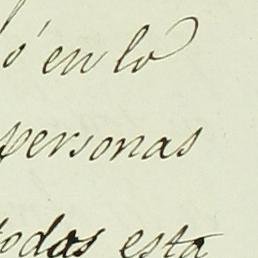 ó en lo
personas
todas esta